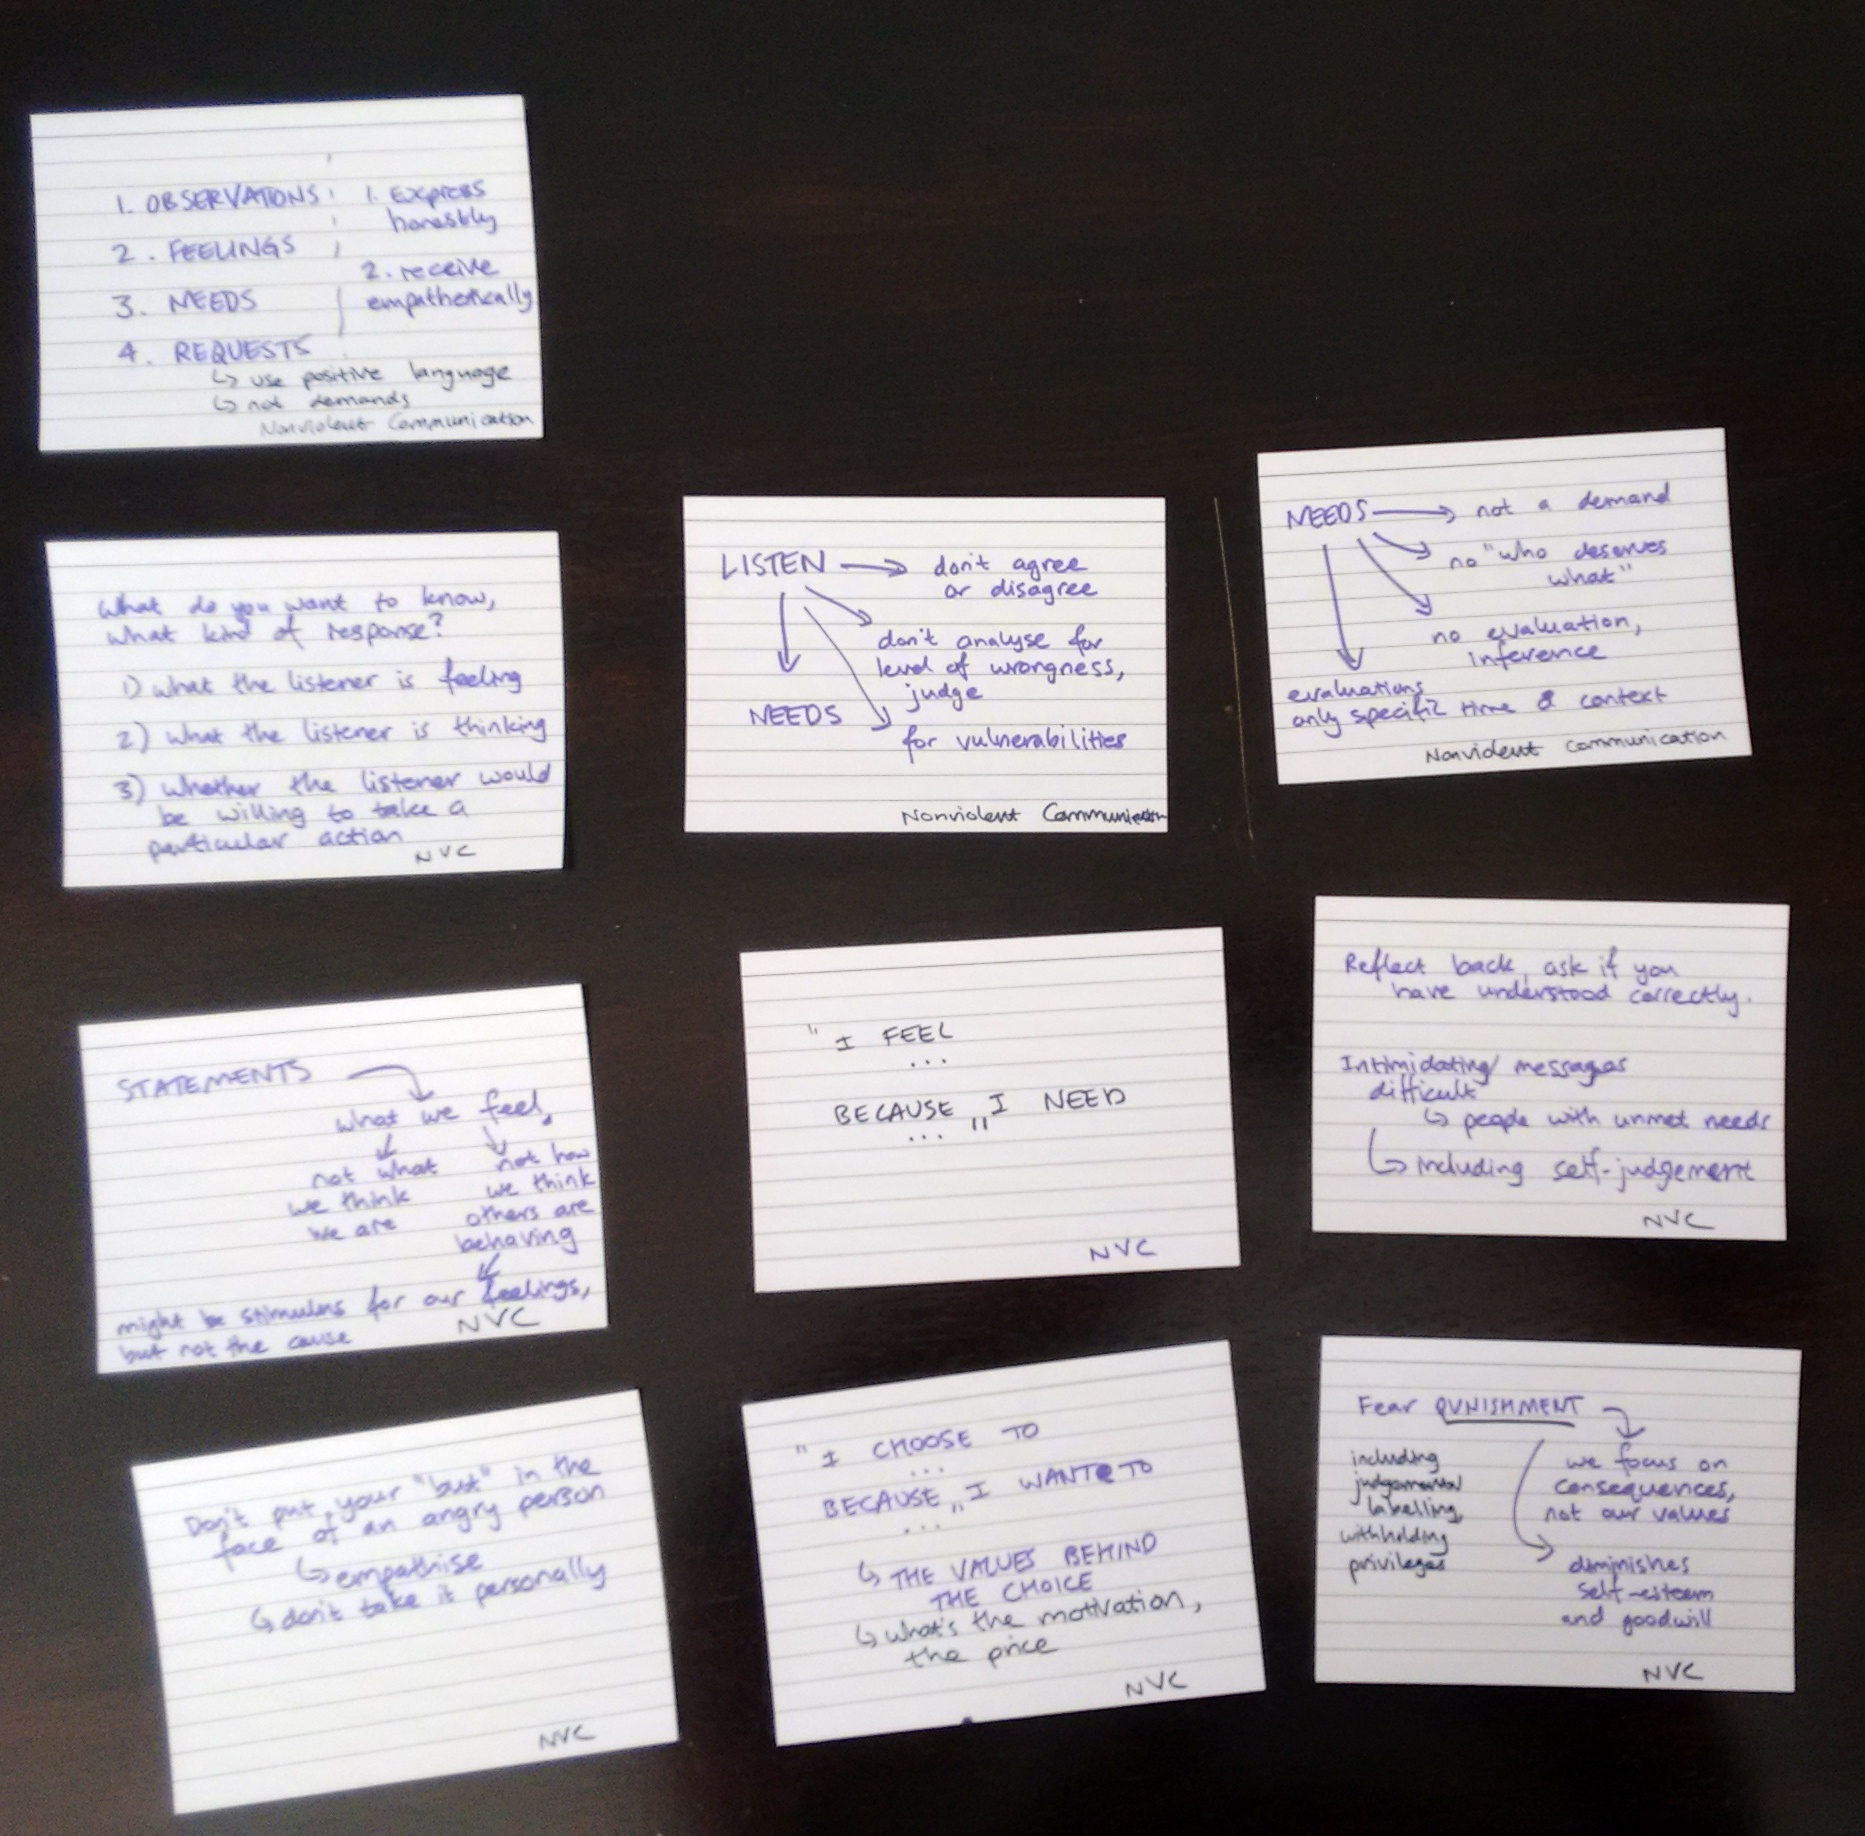 1. OBSERVATIONS
2. FEELINGS
3. NEEDS
4. REQUESTS
1. Express
honestly
2. receive
empathetically
↳ use positive language
↳ not demands
Nonviolent Communication
What do you want to know,
what kind of response?
1) what the listener is feeling
2) what the listener is thinking
3) whether the listener would
be willing to take a
particular action
NVC
LISTEN → don't agree
or disagree
don't analyse for
level of wrongness,
judge
NEEDS
for vulnerabilities
Nonviolent Communication
NEEDS → not a demand
no "who deserves
what"
no evaluation,
inference
evaluations
only specific time & context
Nonviolent Communication
STATEMENTS
what we feel,
not what
we think
we are
not how
we think
others are
behaving
might be stimulus for our feelings,
but not the cause
NVC
"I FEEL
...
BECAUSE I NEED
... "
NVC
Reflect back, ask if you
have understood correctly.
Intimidating/ messages
difficult
↳ people with unmet needs
↳ including self-judgement
NVC
Don't put your "but" in the
face of an angry person
↳ empathise
↳ don't take it personally
NVC
"I CHOOSE TO
...
BECAUSE I WANT TO
... "
↳ THE VALUES BEHIND
THE CHOICE
↳ what's the motivation,
the price
NVC
Fear PUNISHMENT
including
judgemental
labelling,
withholding
privileges
we focus on
consequences,
not our values
diminishes
self-esteem
and goodwill
NVC